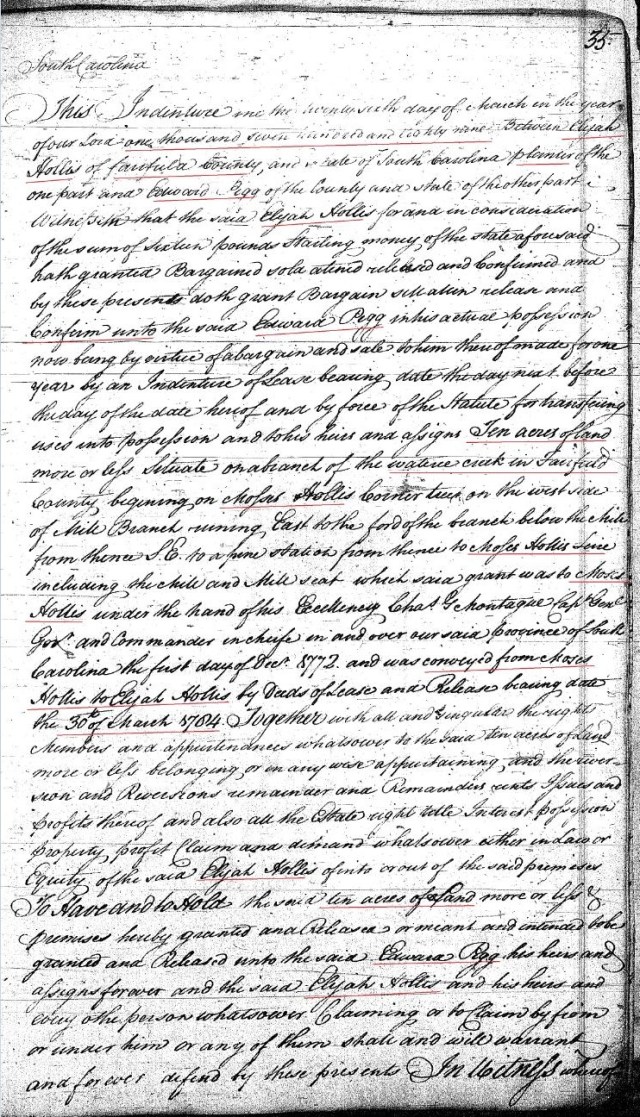 35
South Carolina
This Indenture made the twenty sixth day of March in the year
of our Lord one thousand seven hundred and Eighty nine Between Elijah
Hollis of fairfield County, and state of South Carolina planter of the
one part and Edward Pegg of the County and state of the other part
Witnesseth that the said Elijah Hollis for and in consideration
of the sum of Sixteen pounds Starling money of the state aforesaid
hath granted Bargained sold aliened released and Confirmed and
by these presents doth grant Bargain sell alien release and
Confirm unto the said Edward Pegg in his actual possession
now being by virtue of a bargain and sale to him thereof made for one
year by an Indenture of Lease bearing date the day next before
the day of the date hereof and by force of the Statute for transfering
uses into possession and to his heirs and assigns Ten acres of land
more or less Situate on a branch of the wateree creek in Fairfield
County begining on Moses Hollis Corner tree on the west side
of Mill Branch runing East to the ford of the branch below the Mill
from thence S.E. to a pine station from thence to Moses Hollis Line
including the Mill and Mill seat which said grant was to Moses
Hollis under the hand of his Excellency Chas. G. Montague Capt. Genl.
Govr. and Commander in cheife in and over our said Province of South
Carolina the first day of Decr. 1772. and was conveyed from Moses
Hollis to Elijah Hollis by Deeds of Lease and Release bearing date
the 30th of March 1784. Together with all and Singular the rights
Members and appurtenances whatsower to the said ten acres of Land
more or less belonging or in any wise appurtaining, and the rever-
sion and Reversions remainder and Remainders rents Issues and
profits thereof and also all the Estate right title Interest possession
property profit Claim and demand whatsower either in Law or
Equity of the said Elijah Hollis of into or out of the said premises
To Have and to Hold the said ten acres of Land more or less &
premises hereby granted and Released or meant and intended to be
granted and Released unto the said Edward Pegg his heirs and
assigns forever and the said Elijah Hollis and his heirs and
every othe person whatsower Claiming or to Claim by from
or under him or any of them shall and will warrant
and forever defend by these presents In Witness whereof